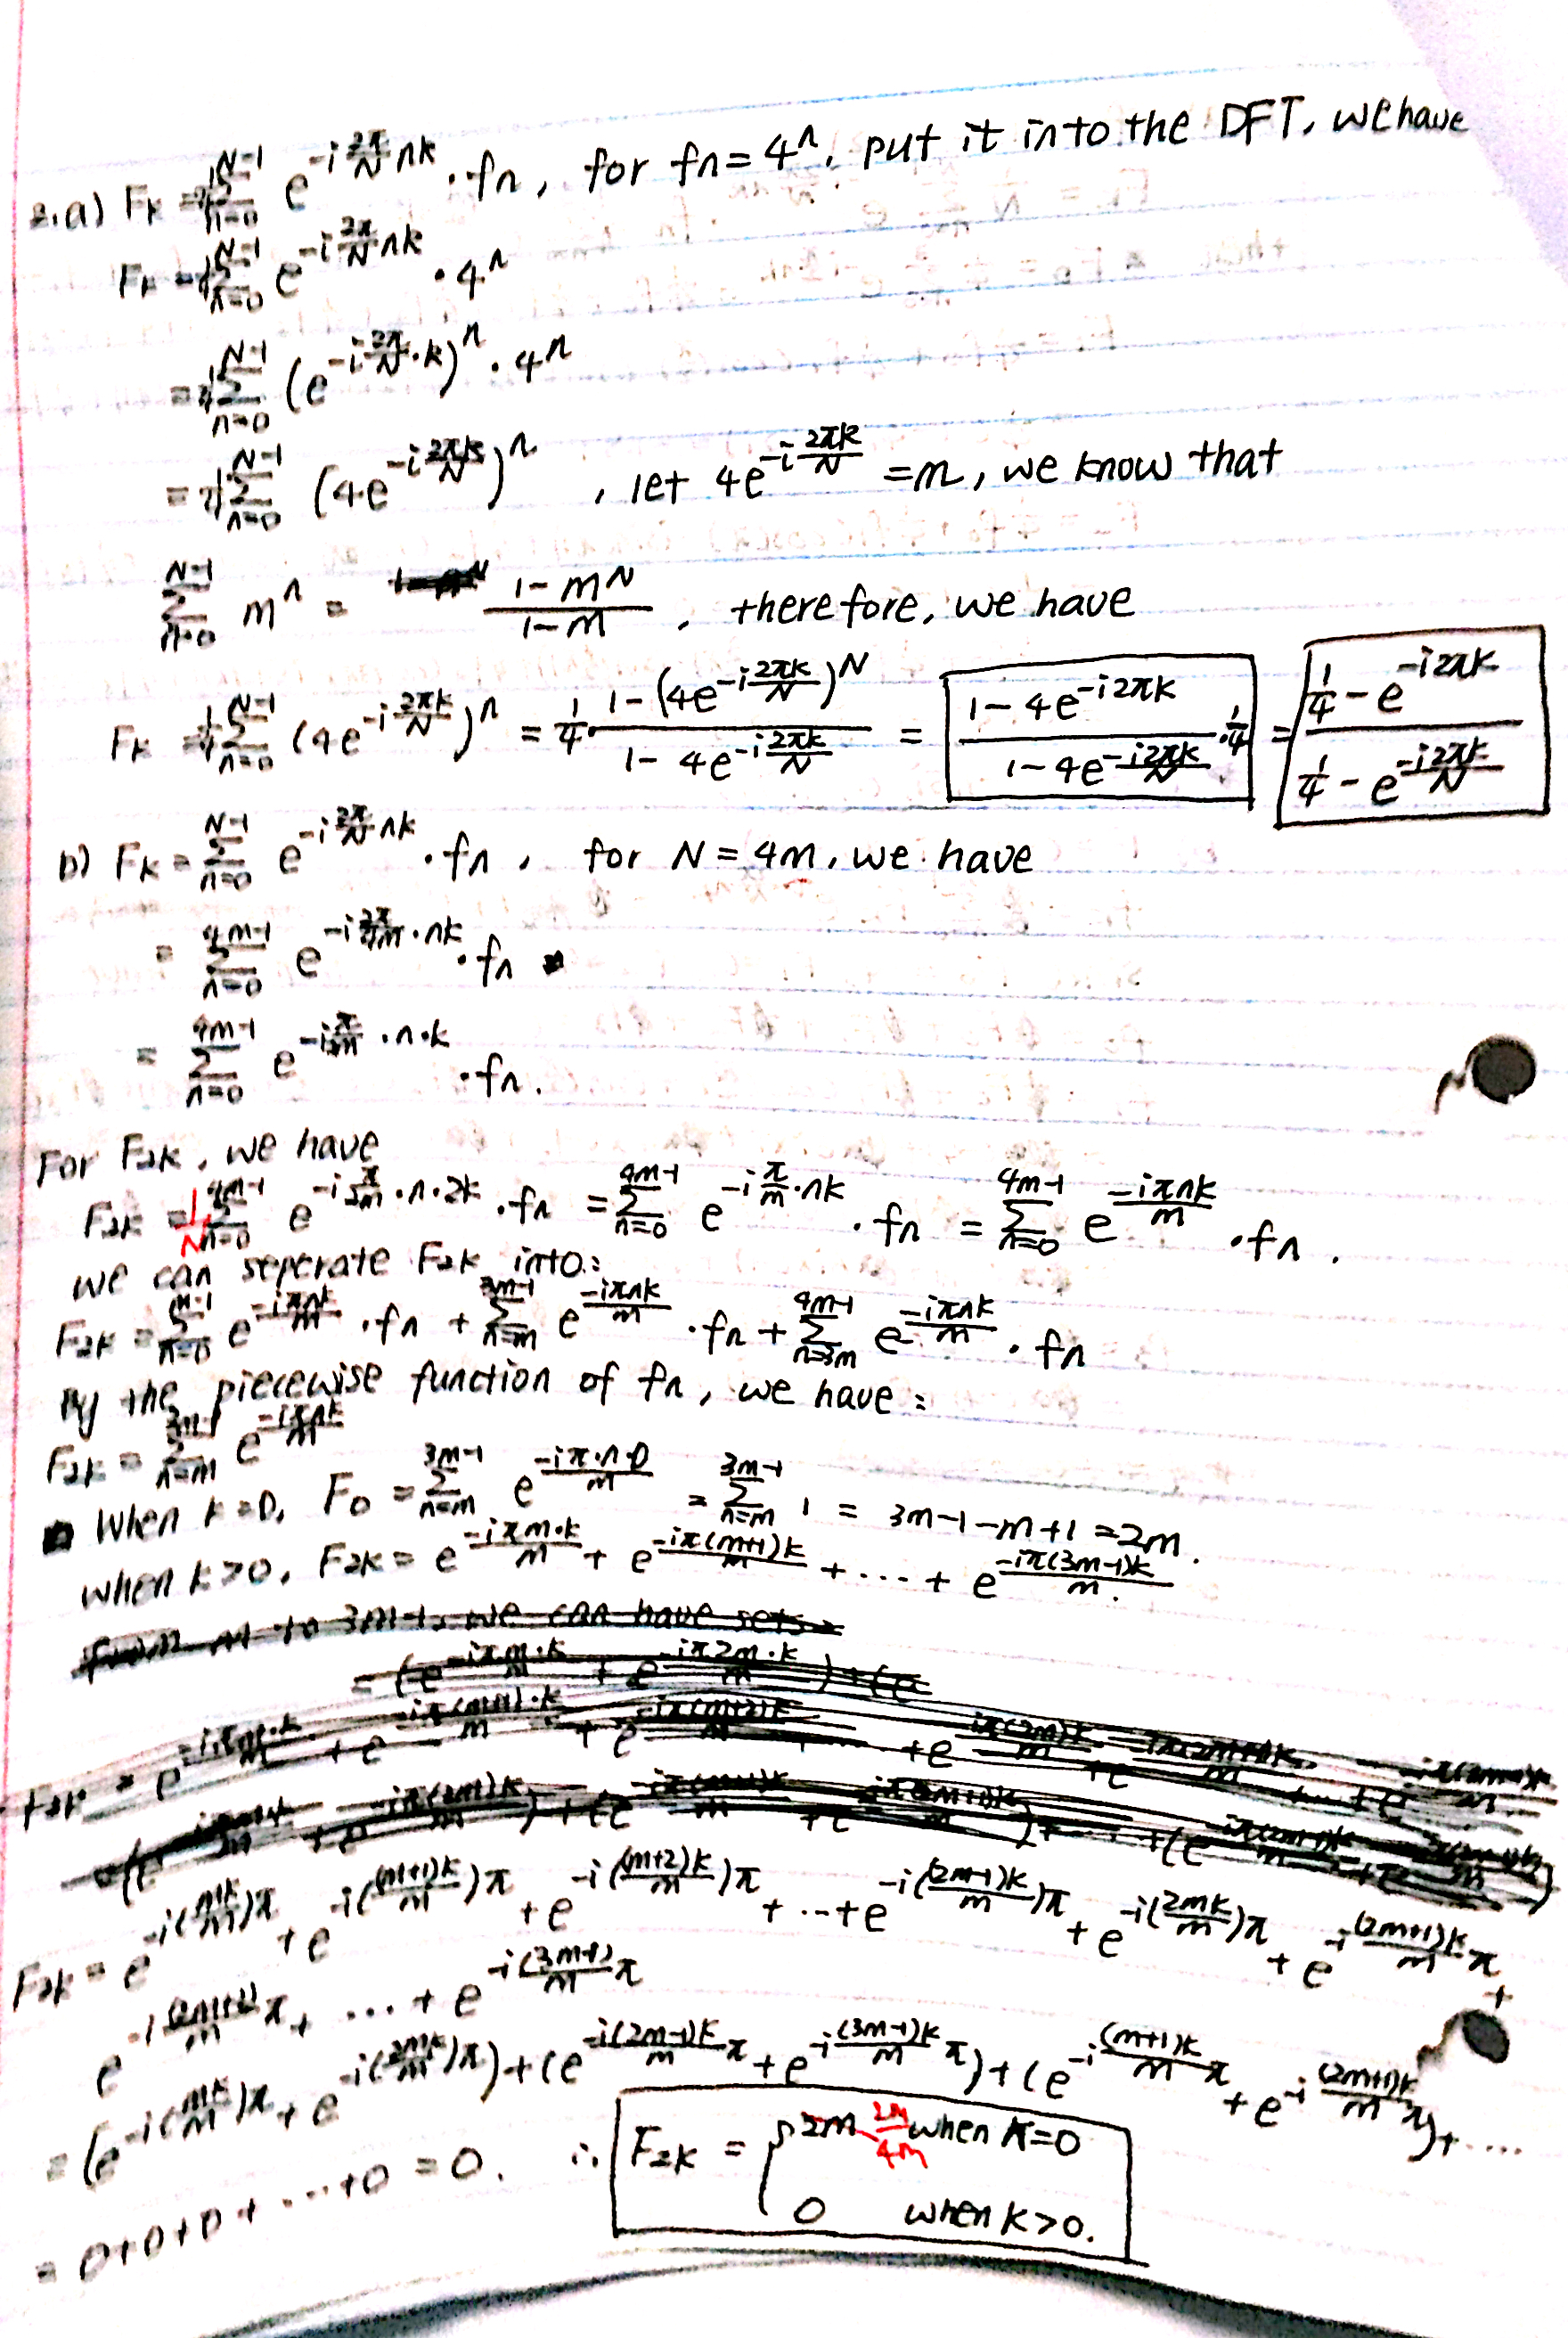 2.a) Fk = 1/4 Σ_{n=0}^{N-1} e^{-i 2π/N nk} · fn, for fn = 4^n, put it into the DFT, we have
Fk = 1/4 Σ_{n=0}^{N-1} e^{-i 2π/N nk} · 4^n
= 1/4 Σ_{n=0}^{N-1} (e^{-i 2π/N · k})^n · 4^n
= 1/4 Σ_{n=0}^{N-1} (4e^{-i 2πk/N})^n , let 4e^{-i 2πk/N} = m, we know that
Σ_{n=0}^{N-1} m^n = (1-m^N)/(1-m) , therefore, we have
Fk = 1/4 Σ_{n=0}^{N-1} (4e^{-i 2πk/N})^n = 1/4 · (1-(4e^{-i 2πk/N})^N)/(1-4e^{-i 2πk/N}) = (1-4e^{-i2πk})/(1-4e^{-i2πk/N}) · 1/4 = (1/4 - e^{-i2πk})/(1/4 - e^{-i2πk/N})
b) Fk = Σ_{n=0}^{N-1} e^{-i 2π/N nk} · fn , for N = 4m, we have
= Σ_{n=0}^{4m-1} e^{-i 2π/4m · nk} · fn
= Σ_{n=0}^{4m-1} e^{-i π/2m · n·k} · fn.
For F2k, we have
F2k = 1/N Σ_{n=0}^{4m-1} e^{-i π/2m · n·2k} · fn = Σ_{n=0}^{4m-1} e^{-i π/m · nk} · fn = Σ_{n=0}^{4m-1} e^{-iπnk/m} · fn .
we can seperate F2k into:
F2k = Σ_{n=0}^{m-1} e^{-iπnk/m} · fn + Σ_{n=m}^{3m-1} e^{-iπnk/m} · fn + Σ_{n=3m}^{4m-1} e^{-iπnk/m} · fn
By the piecewise function of fn, we have :
F2k = Σ_{n=m}^{3m-1} e^{-iπnk/m}
When k=0, F0 = Σ_{n=m}^{3m-1} e^{-iπ·n·0/m} = Σ_{n=m}^{3m-1} 1 = 3m-1-m+1 = 2m.
when k>0, F2k = e^{-iπm·k/m} + e^{-iπ(m+1)k/m} + ... + e^{-iπ(3m-1)k/m}.
from m to 3m-1, we can have sets
F2k = e^{-i(mk/m)π} + e^{-i((m+1)k/m)π} + e^{-i((m+2)k/m)π} + ... + e^{-i((2m-1)k/m)π} + e^{-i(2mk/m)π} + e^{-i (2m+1)k/m π} +
... + e
= (e^{-i(mk/m)π} + e^{-i(2mk/m)π}) + (e^{-i(2m-1)k/m π} + e^{-i (3m-1)k/m π}) + (e^{-i (m+1)k/m π} + e^{-i (2m+1)k/m π}) + ....
= 0+0+0+ ...+0 = 0. ∴ F2k = { 2m 2m/4m when k=0
0 when k>0.